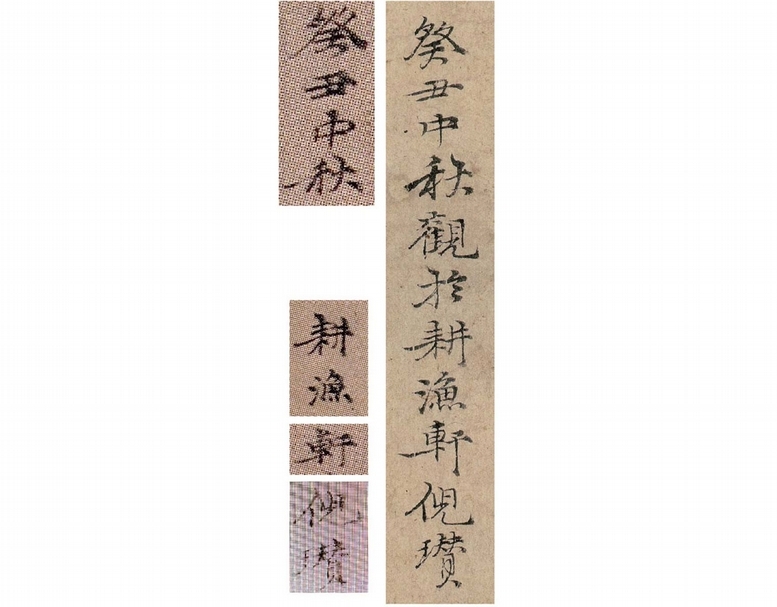 癸丑中秋觀於耕漁軒倪瓚
癸丑中秋
耕漁
軒
倪瓚